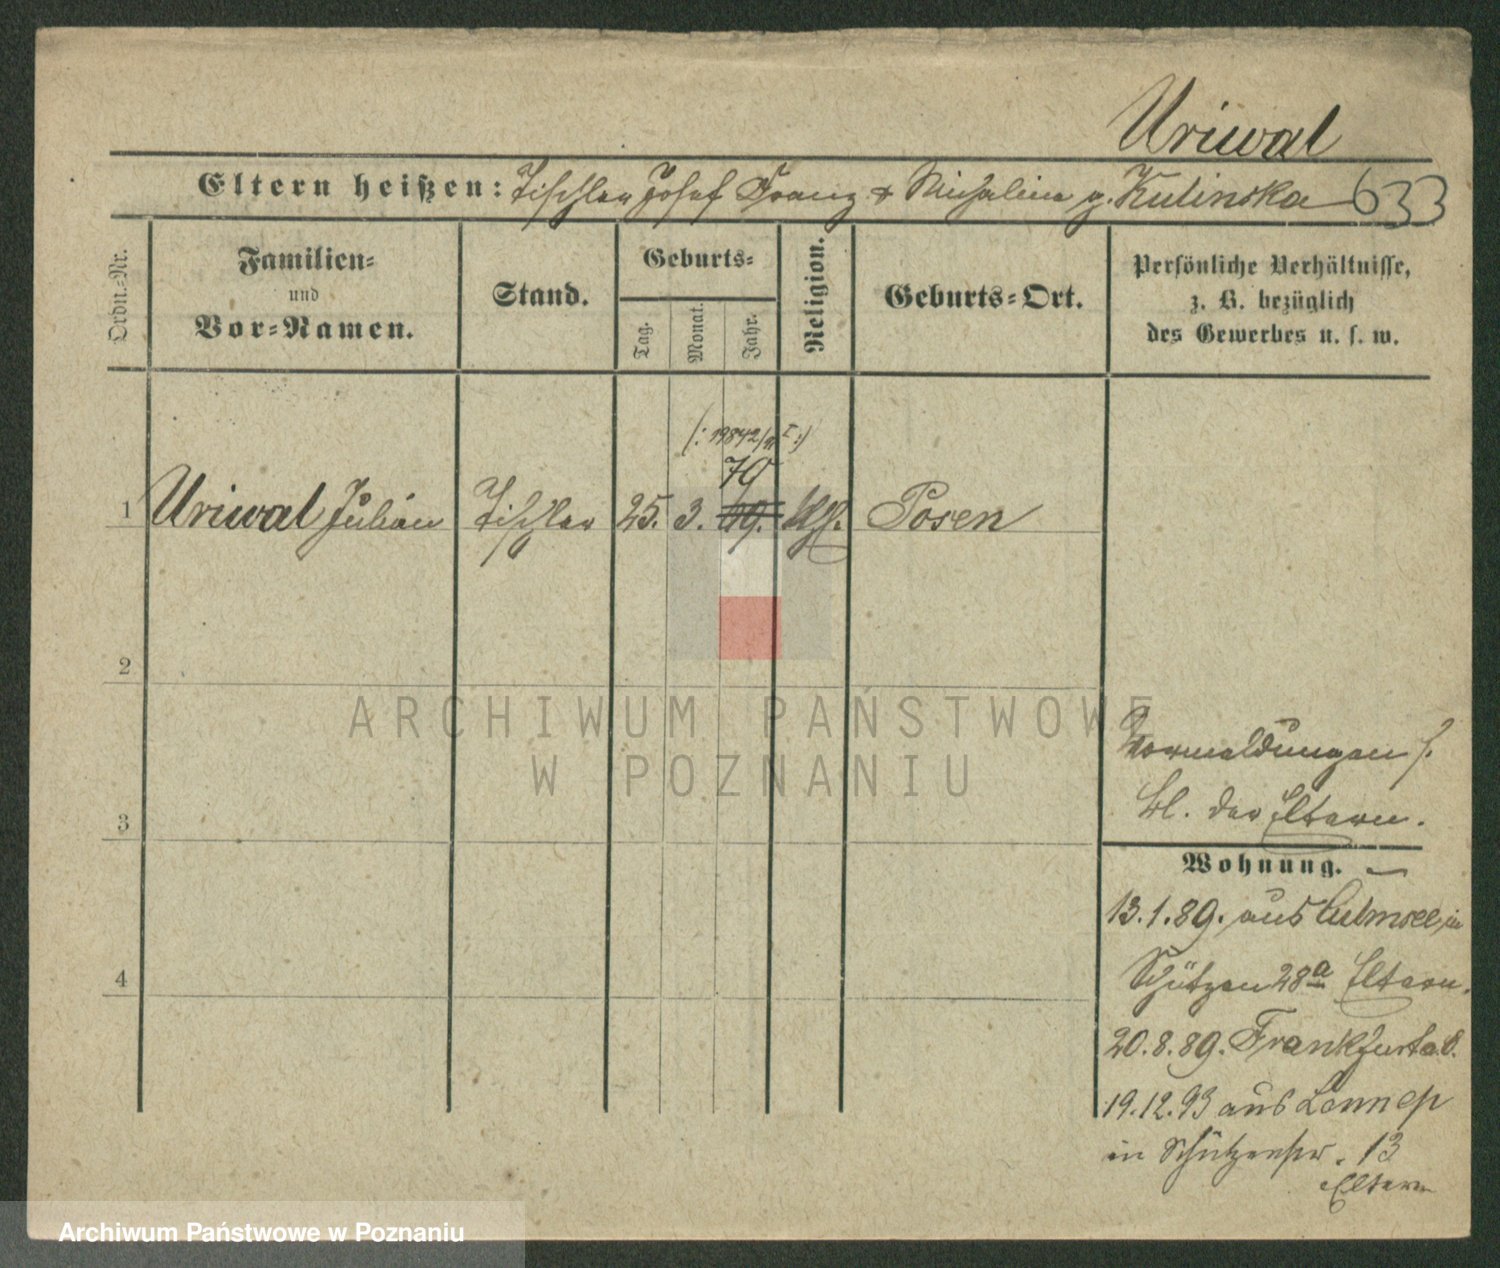 Uriwal
Eltern heißen: Tischler Josef Franz & Michalina g. Kulinska 633
Ordn.-Nr.
Familien-
und
Vor-Namen.
Stand.
Geburts-
Tag.
Monat.
Jahr.
Religion.
Geburts-Ort.
Persönliche Verhältnisse,
z. B. bezüglich
des Gewerbes u. s. w.
70
1 Uriwal Julian Tischler 25. 3. 69. kth. Posen
2
3
4
Vormeldungen s.
bl. der Eltern.
Wohnung.
13.1.89. aus Culmsee, in
Schützen 28a Eltern.
20.8.89. Frankfurt a.O.
19.12.93 aus Lennep
in Schützenstr. 13
Eltern
ARCHIWUM PAŃSTWOWE
W POZNANIU
Archiwum Państwowe w Poznaniu